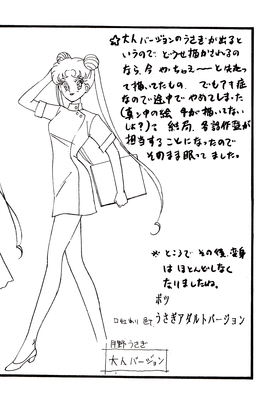 ☆大人バージョンのうさぎが出ると
いうので、どうせ描かされるの
なら、今やっちゃえーーと先走っ
て描いてたもの。でもすぐ症
なので途中でやめてしまった
(真ン中の絵 手が描いてない
しょ?)。結局、各話作監が
担当することになったので
そのまま眠ってました。
※ところでその後、変身
はほとんどしなく
なりましたね。
ボツ
うさぎアダルトバージョン
月野うさぎ
大人バージョン